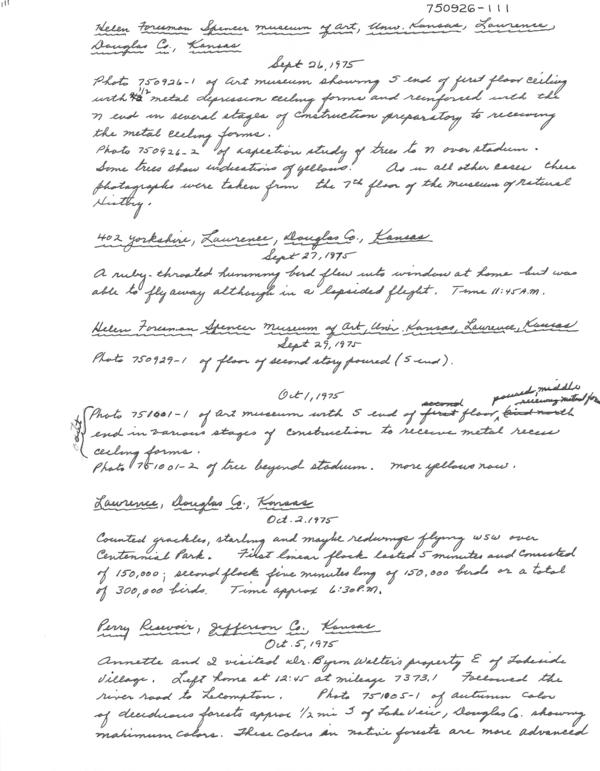 750926-111
Helen Foresman Spencer Museum of Art, Univ. Kansas, Lawrence,
Douglas Co., Kansas
Sept 26, 1975
Photo 750926-1 of art museum showing S end of first floor ceiling
with 1/2 metal depression ceiling forms and reinforced with the
N end in several stages of construction preparatory to receiving
the metal ceiling forms.
Photo 750926-2 of aspection study of trees to N over stadium.
Some trees show indications of yellows. As in all other cases these
photographs were taken from the 7th floor of the Museum of Natural
History.
402 Yorkshire, Lawrence, Douglas Co., Kansas
Sept 27, 1975
A ruby-throated humming bird flew into window at home but was
able to fly away although in a lopsided flight. Time 11:45 A.M.
Helen Foresman Spencer Museum of Art, Univ. Kansas, Lawrence, Kansas
Sept 29, 1975
Photo 750929-1 of floor of second story poured (S end).
Oct 1, 1975
second poured, middle receiving metal
Photo 751001-1 of art museum with S end of first floor, and north
end in various stages of construction to receive metal recess
ceiling forms.
Photo 751001-2 of tree beyond stadium. More yellows now.
Lawrence, Douglas Co., Kansas
Oct. 2, 1975
Counted grackles, starling and maybe redwings flying WSW over
Centennial Park. First linear flock lasted 5 minutes and consisted
of 150,000; second flock five minutes long of 150,000 birds or a total
of 300,000 birds. Time approx 6:30 P.M.
Perry Resevoir, Jefferson Co., Kansas
Oct. 5, 1975
Annette and I visited Dr. Byron Walter's property E of Lakeside
Village. Left home at 12:45 at mileage 7373.1 Followed the
river road to Lecompton. Photo 751005-1 of autumn color
of deciduous forests approx 1/2 mi S of Lake View, Douglas Co. showing
maximum colors. These colors in native forests are more advanced